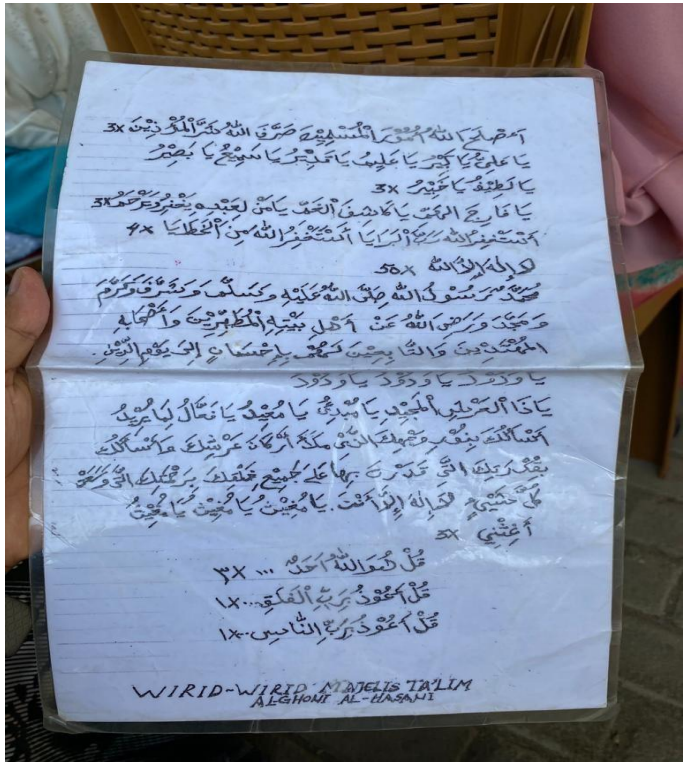 أَصْلَحَ اللهُ أُمُوْرَ الْمُسْلِمِيْنَ صَرَّفَ اللهُ شَرَّ الْمُؤْذِيْنَ 3x
يَا عَلِيُّ يَا كَبِيْرُ يَا عَلِيْمُ يَا قَدِيْرُ يَا سَمِيْعُ يَا بَصِيْرُ
يَا لَطِيْفُ يَا خَبِيْرُ 3x
يَا فَارِجَ الْهَمِّ يَا كَاشِفَ الْغَمِّ يَا مَنْ لِعَبْدِهِ يَغْفِرُ وَيَرْحَمُ 3x
أَسْتَغْفِرُ اللهَ رَبَّ الْبَرَايَا أَسْتَغْفِرُ اللهَ مِنَ الْخَطَايَا 4x
لَا إِلَهَ إِلَّا اللهُ 50x
مُحَمَّدٌ رَسُوْلُ اللهِ صَلَّى اللهُ عَلَيْهِ وَسَلَّمَ وَشَرَّفَ وَكَرَّمَ
وَمَجَّدَ وَرَضِيَ اللهُ عَنْ أَهْلِ بَيْتِهِ الْمُطَهَّرِيْنَ وَأَصْحَابِهِ
الْمُهْتَدِيْنَ وَالتَّابِعِيْنَ لَهُمْ بِإِحْسَانٍ إِلَى يَوْمِ الدِّيْنِ.
يَا وَدُوْدُ يَا وَدُوْدُ يَا وَدُوْدُ
يَا ذَا الْعَرْشِ الْمَجِيْدِ يَا مُبْدِئُ يَا مُعِيْدُ يَا فَعَّالُ لِمَا يُرِيْدُ
أَسْأَلُكَ بِنُوْرِ وَجْهِكَ الَّذِيْ مَلَأَ أَرْكَانَ عَرْشِكَ وَأَسْأَلُكَ
بِقُدْرَتِكَ الَّتِيْ قَدَرْتَ بِهَا عَلَى جَمِيْعِ خَلْقِكَ بِرَحْمَتِكَ الَّتِيْ وَسِعَتْ
كُلَّ شَيْئٍ لَا إِلَهَ إِلَّا أَنْتَ. يَا مُغِيْثُ يَا مُغِيْثُ يَا مُغِيْثُ
أَغِثْنِيْ 3x
قُلْ هُوَ اللهُ أَحَدٌ ... ٣x
قُلْ أَعُوْذُ بِرَبِّ الْفَلَقِ... ١x
قُلْ أَعُوْذُ بِرَبِّ النَّاسِ... ١x
WIRID-WIRID MAJELIS TA'LIM
ALGHONI AL-HASANI